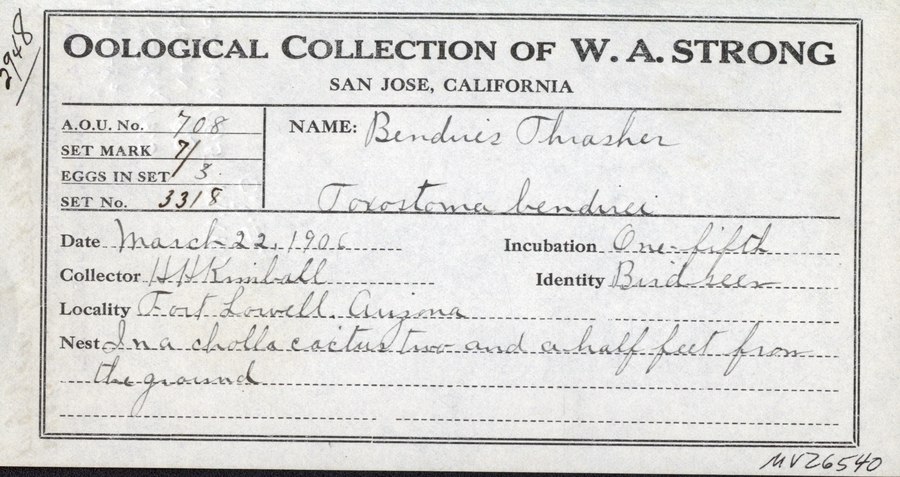 2948
OOLOGICAL COLLECTION OF W. A. STRONG
SAN JOSE, CALIFORNIA
A.O.U. No. 708
SET MARK 7/
EGGS IN SET 3
SET No. 3318
NAME: Bendires Thrasher
Toxostoma bendirei
Date March 22, 1906
Incubation One-fifth
Collector H H Kimball
Identity Bird seen
Locality Fort Lowell, Arizona
Nest In a cholla cactus two and a half feet from
the ground
MVZ6540